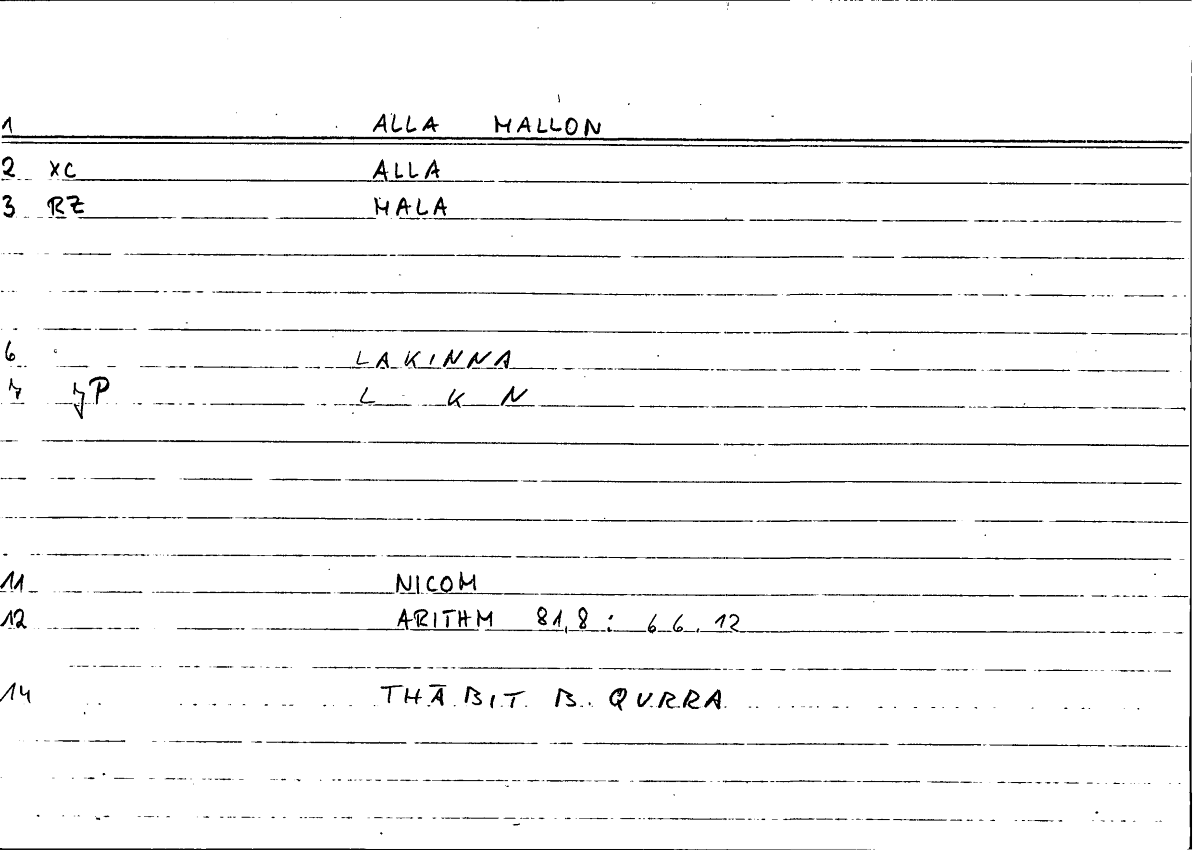 1 ALLA MALLON
2 XC ALLA
3 RZ MALA
6 LAKINNA
7 P L K N
11 NICOM
12 ARITHM 81,8 : 66.12
14 THĀBIT B. QURRA